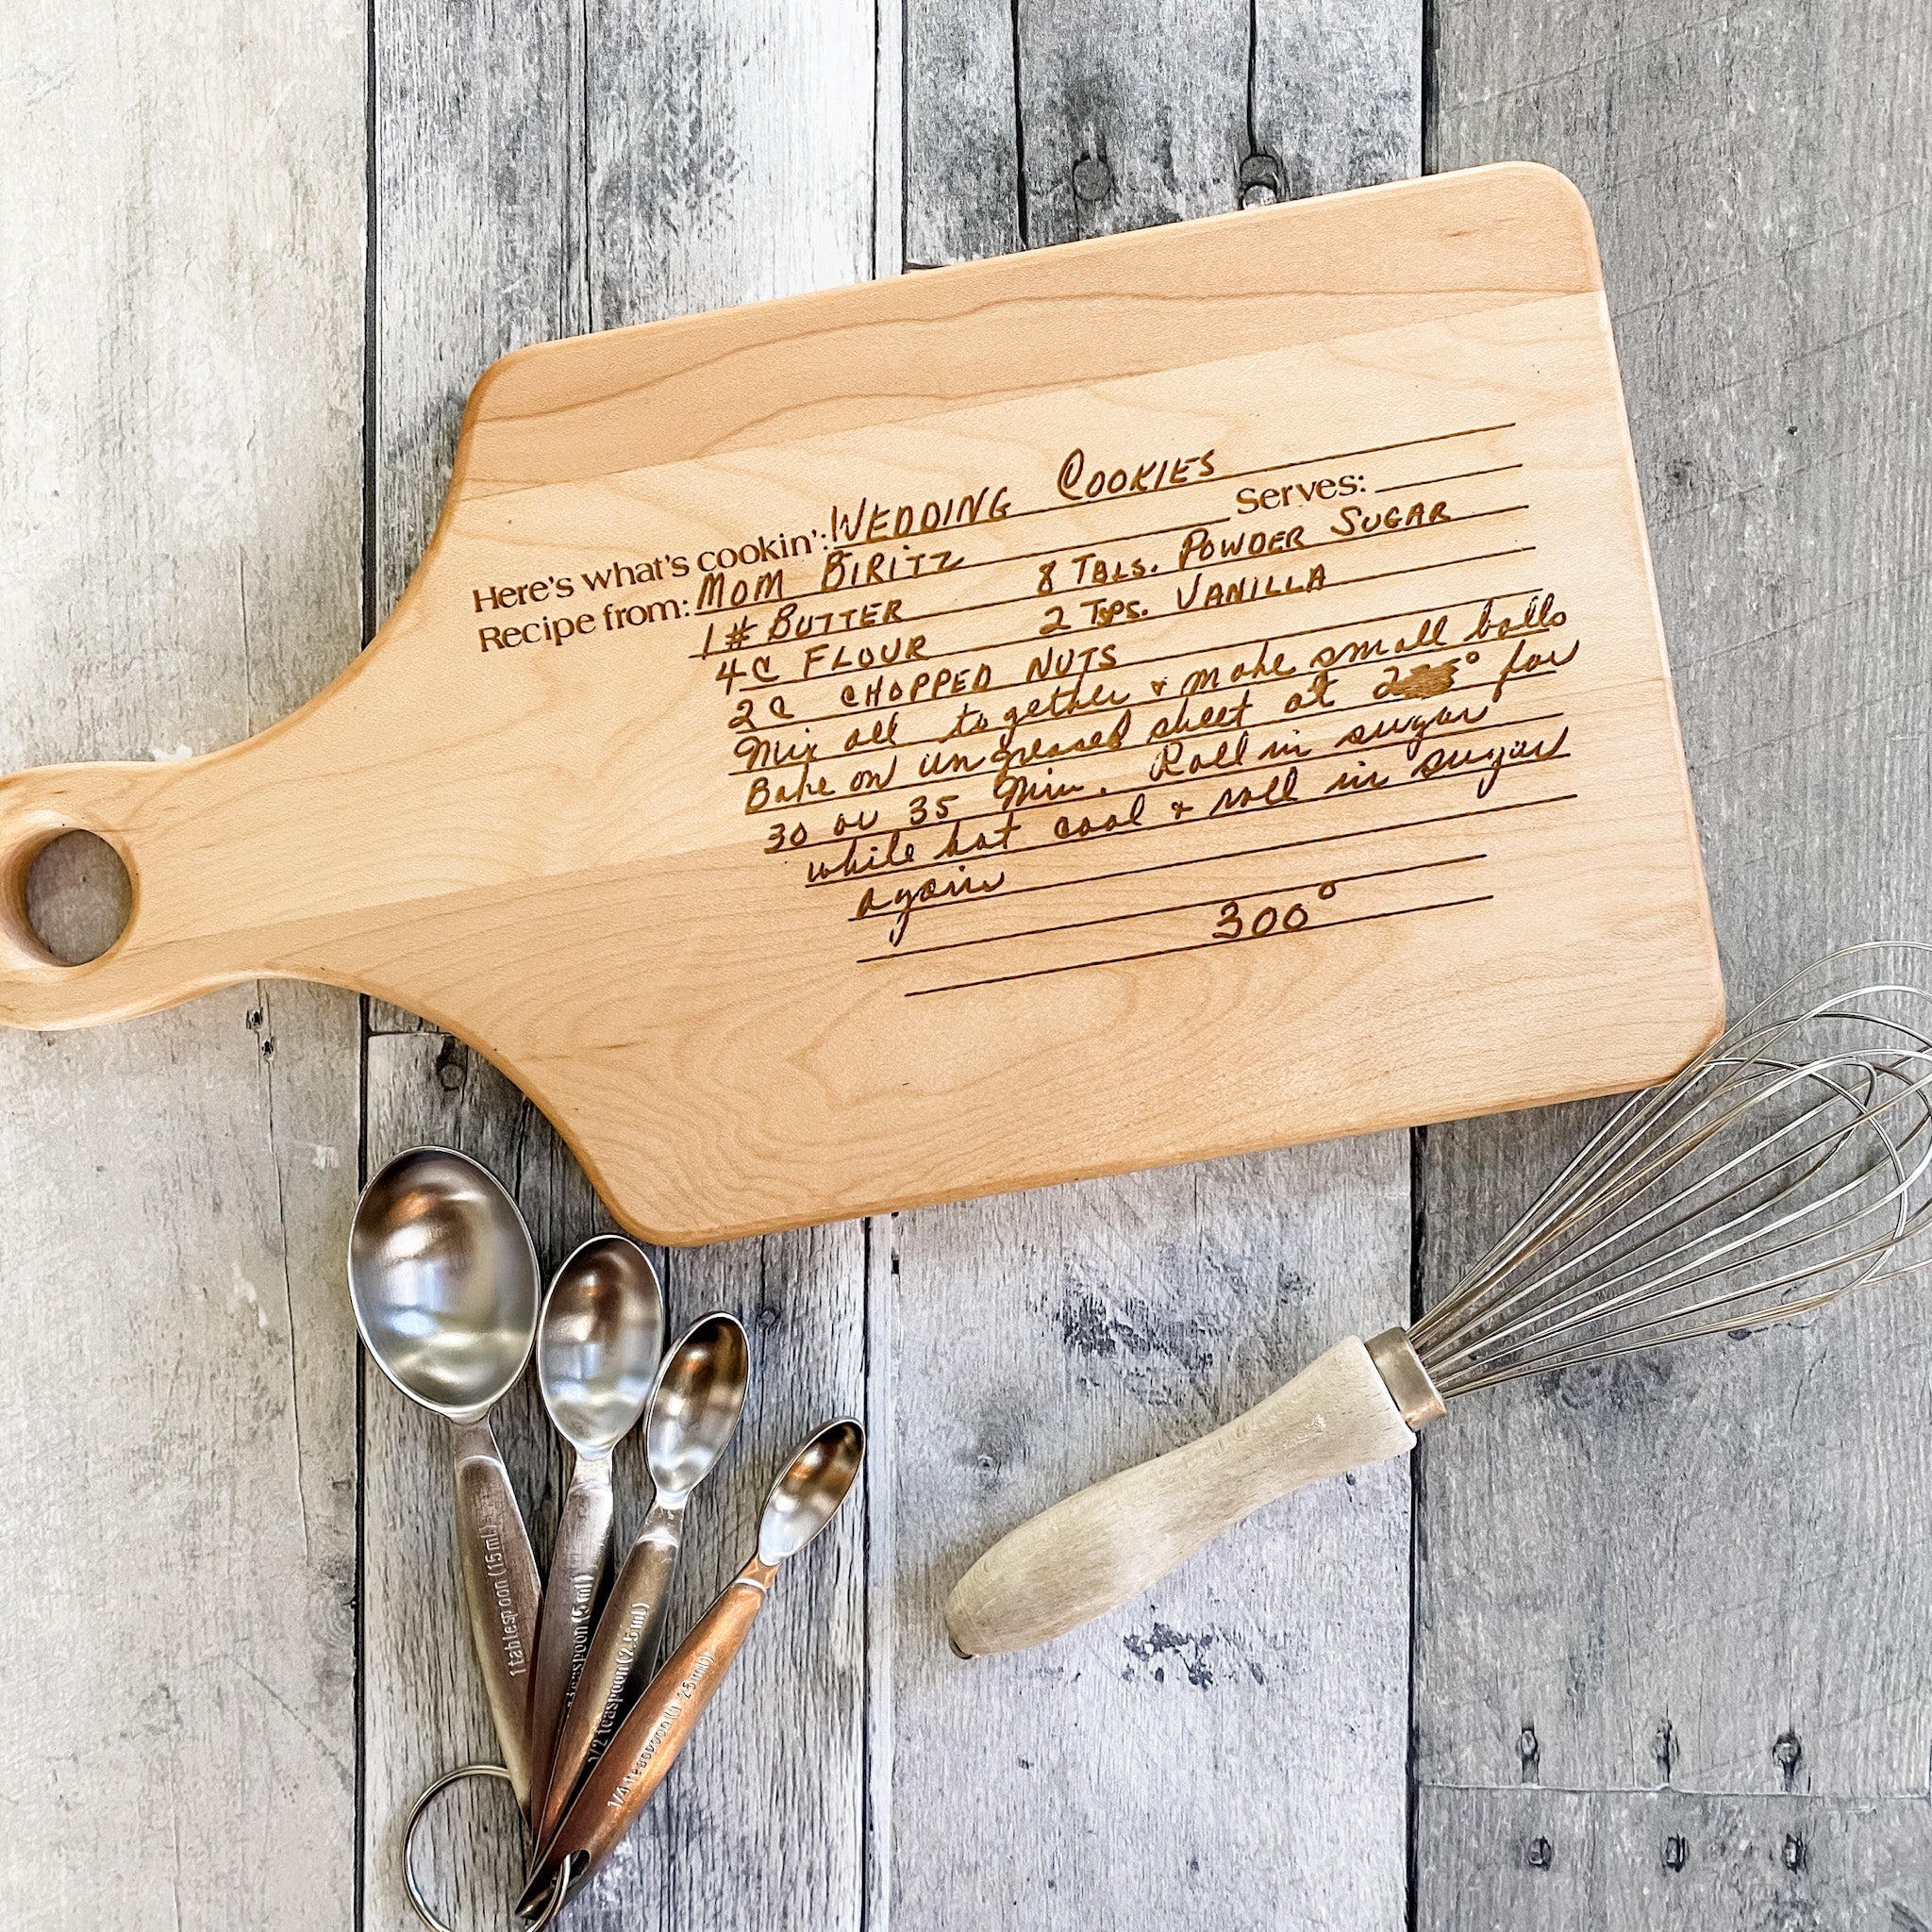 Here's what's cookin': WEDDING COOKIES
Recipe from: MOM BIRITZ Serves:
1# BUTTER 8 TBLS. POWDER SUGAR
4C FLOUR 2 TSPS. VANILLA
2C CHOPPED NUTS
Mix all together & make small balls
Bake on ungreased sheet at ° for
30 or 35 Min. Roll in sugar
while hot cool & roll in sugar
again
300°
1 tablespoon (15 ml)
(5 ml)
1/2 teaspoon (2.5 ml)
1/4 teaspoon (1.25 ml)